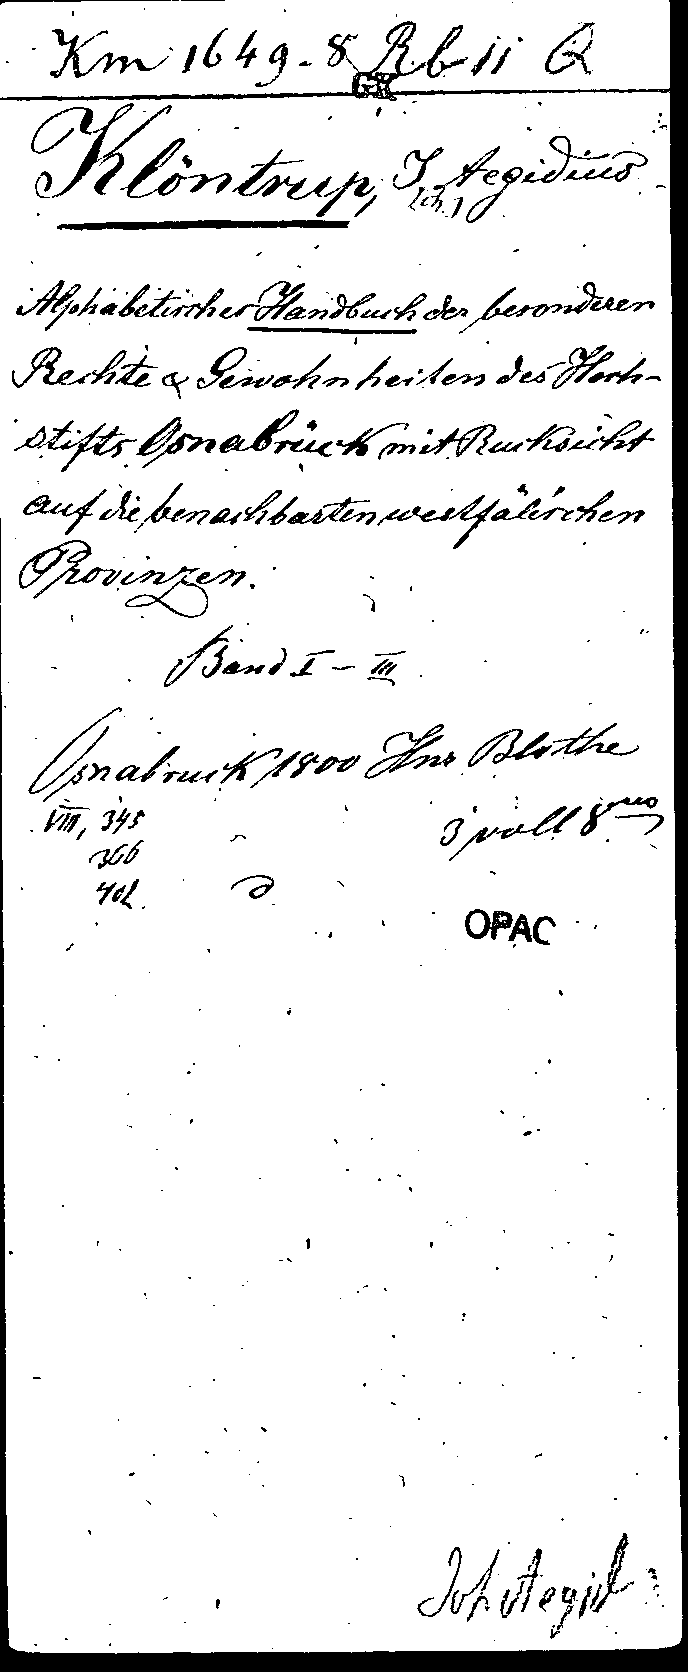 Km 1649-8 Rb 11 Q
Klöntrup, J. Aegidius
Alphabetischer Handbuch der besonderen
Rechte & Gewohnheiten des Hoch-
stifts Osnabrück mit Rucksicht
auf die benachbarten westfälischen
Provinzen.
Band I - III
Osnabruck 1800 Hnr Blothe
VIII, 345
366
402.
3 voll 8
OPAC
Joh Aegid